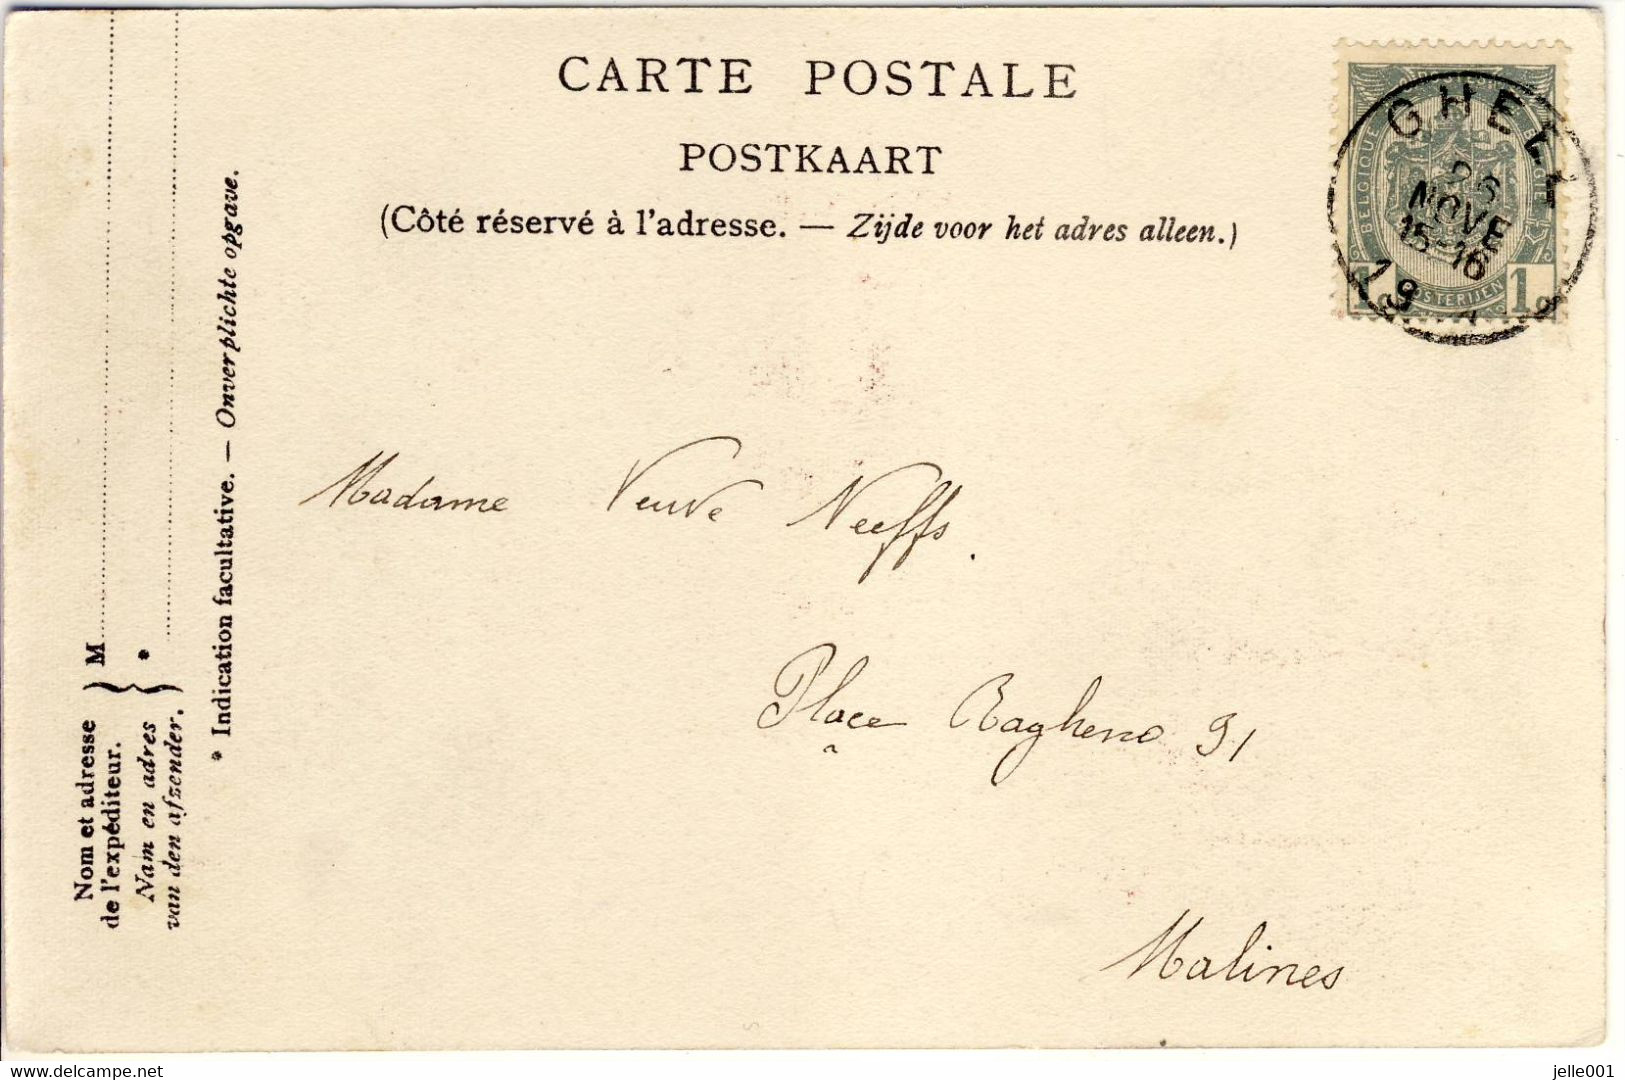 CARTE POSTALE
POSTKAART
(Côté réservé à l'adresse. — Zijde voor het adres alleen.)
GHEEL
26
NOVE
15-16
19
BELGIQUE BELGIË
POSTERIJEN
1c 1c
Nom et adresse
de l'expéditeur.
Nam en adres
van den afzender.
M
*
* Indication facultative. — Onverplichte opgave.
Madame Veuve Neeffs.
Place Ragheno 31
Malines
delcampe.net
jelle001